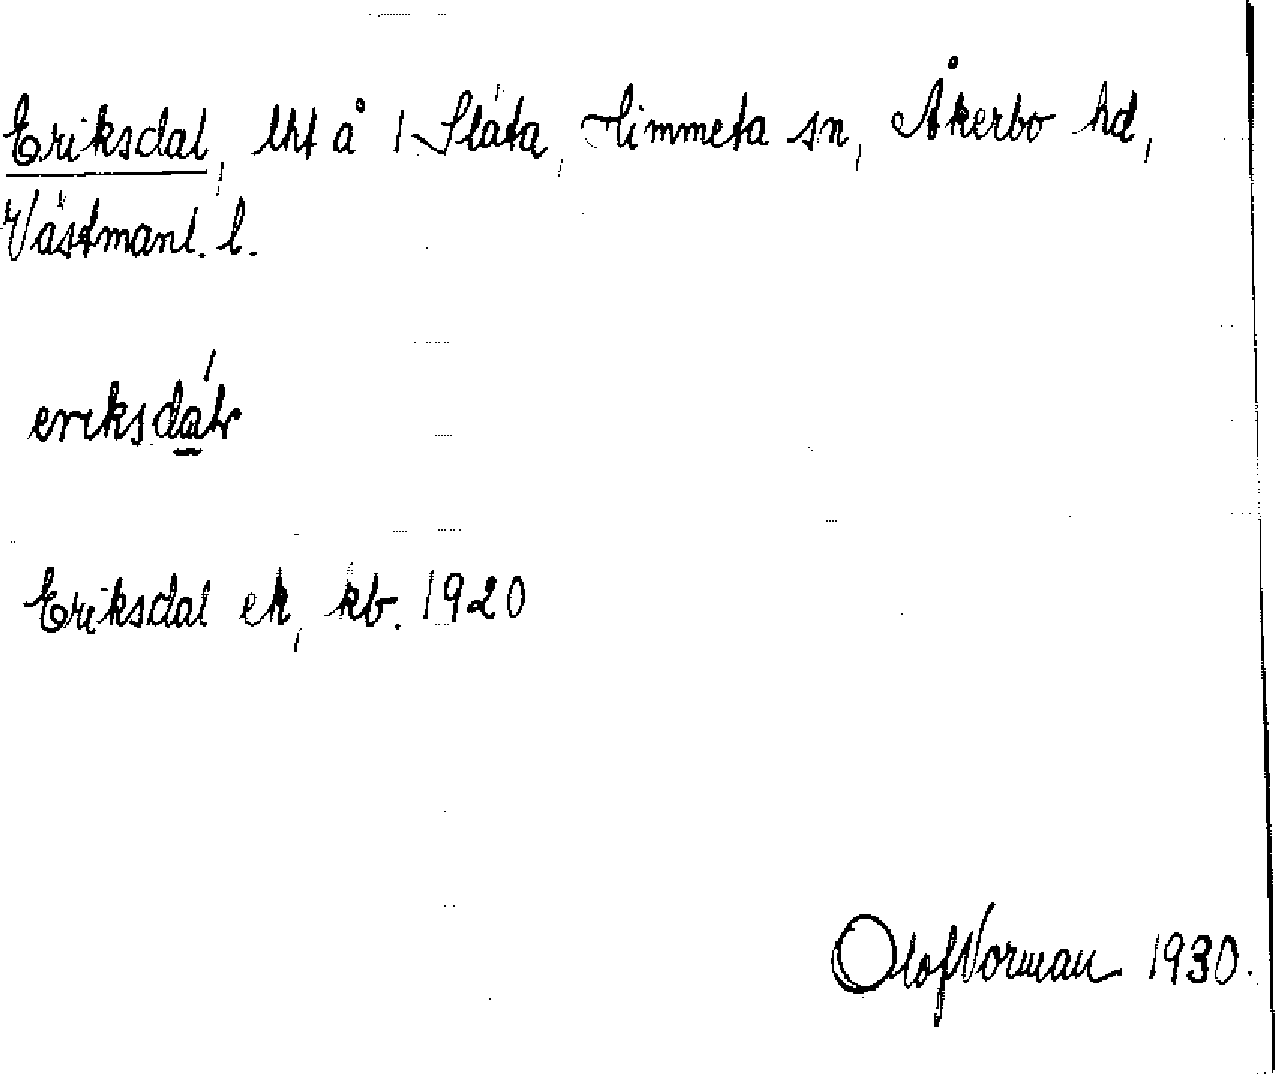 Eriksdal, lht å 1 Slåta, Himmeta sn, Åkerbo hd,
Västmanl. l.
eriksdáḷ
Eriksdal ek, kb. 1920
Olof Norman 1930.